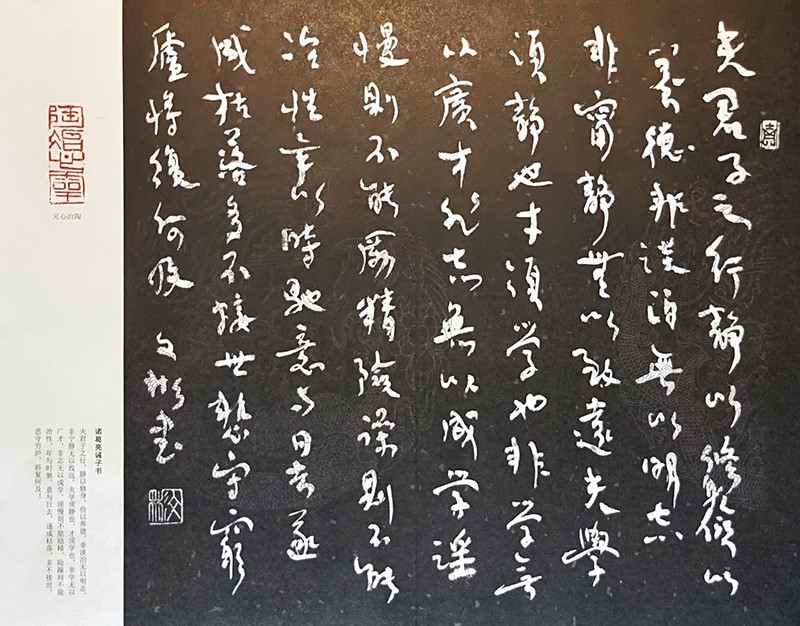 夫君子之行静以修身俭以
养德非淡泊无以明志
非甯静無以致遠夫學
须静也才须学也非学无
以廣才非志無以成学淫
慢则不能励精險躁则不能
冶性年以時馳意与日去遂
成枯落多不接世悲守窮
廬将復何及 文彬書
文彬
灵心冶陶
诸葛亮诫子书
夫君子之行，静以修身，俭以养德。非淡泊无以明志，
非宁静无以致远。夫学须静也，才须学也，非学无以
广才，非志无以成学。淫慢则不能励精，险躁则不能
治性。年与时驰，意与日去，遂成枯落，多不接世，
悲守穷庐，将复何及！